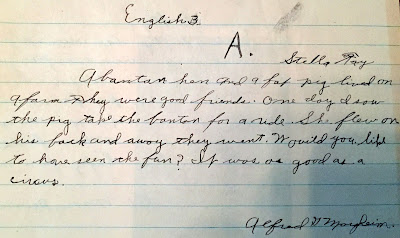 English 3.
A.
Stella Fay
A bantan hen and a fat pig lived on
a farm They were good friends. One day I saw
the pig take the bantan for a ride. She flew on
his back and away they went. Would you like
to have seen the fun? It was as good as a
circus.
Alfred